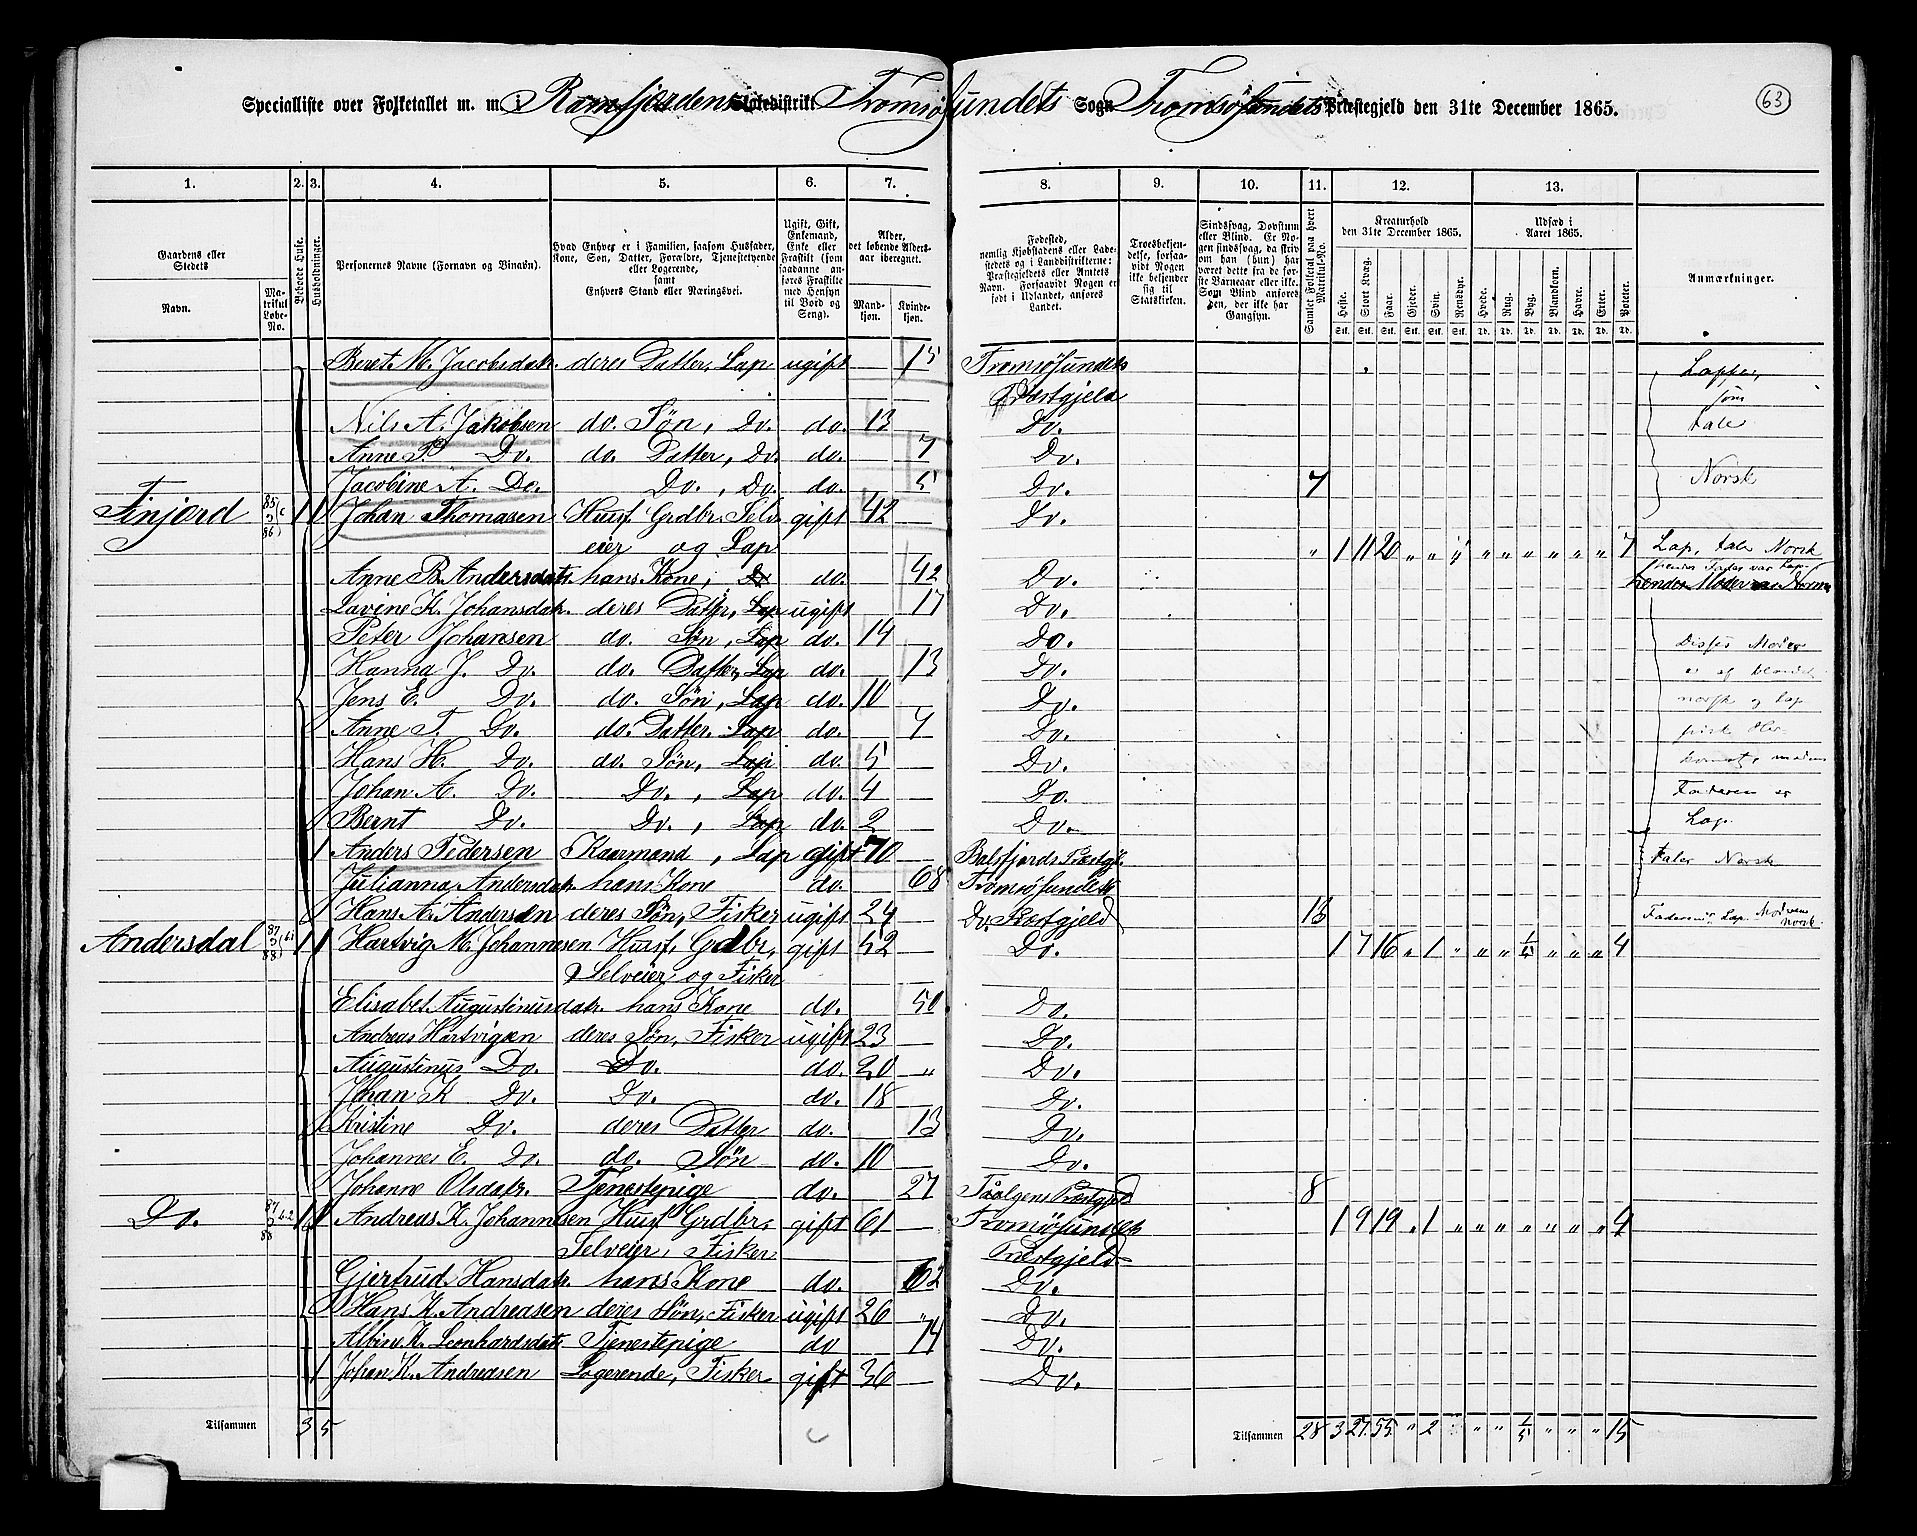 63
Specialliste over Folketallet m. m. i Ramfjordens Tolkedistrikt Tromsøsundets Sogn Tromsøsundets Præstegjeld den 31te December 1865.
1. 2. 3. 4. 5. 6. 7. 8. 9. 10. 11. 12. 13.
Gaardens eller Stedets
Navn.
Matrikul Løbe-No.
Beboede Huse.
Husholdninger.
Personernes Navne (Fornavn og Binavn).
Hvad Enhver er i Familien, saasom Husfader, Kone, Søn, Datter, Forældre, Tjenestetyende eller Logerende, samt Enhvers Stand eller Næringsvei.
Ugift, Gift, Enkemand, Enke eller Fraskilt (som saadanne anføres Fraskilte med Hensyn til Bord og Seng).
Alder, det løbende Aldersaar iberegnet.
Mandkjøn. Kvindekjøn.
Fødested, nemlig Kjøbstadens eller Ladestedets og i Landdistrikterne: Præstegjeldets eller Amtets Navn. Forsaavidt Nogen er født i Udlandet, anføres Landet.
Troesbekjendelse, forsaavidt Nogen ikke bekjender sig til Statskirken.
Sindssvag, Døvstum eller Blind. Er Nogen sindssvag, da skriv om han (hun) har været dette fra de første Barneaar eller ikke. Som Blind anføres den, der ikke har Gangsyn.
Samlet Folketal paa hvert Matrikul-No.
Kreaturhold den 31te December 1865.
Heste. Stort Kvæg. Faar. Gjeder. Svin. Rensdyr.
Udsæd i Aaret 1865.
Hvede. Rug. Byg. Blandkorn. Havre. Erter. Poteter.
Anmærkninger.
Beret M. Jacobsdatr. deres Datter, Lap ugift 15 Tromsøsundets Præstgjeld Lapper, som
Nils A. Jakobsen do. Søn, Do. do. 13 Do. tale
Anne P. Do. do. Datter, Do. do. 7 Do.
Jacobine A. Do. Do., Do. do. 5 Do. 7 Norsk
Finjord 1 1 Johan Thomasen Husf. Grdbr. Selveier og Lap gift 42 Do. " 1 11 20 " " " " " " " " " 7 Lap, taler Norsk
Anne B. Andersdatr hans Kone, Do do. 42 Do. hendes Fader var Lap hendes Moder var Norsk
Lavine K. Johansdatr. deres Datter, Lap ugift 17 Do.
Peter Johansen do. Søn, Lap do. 14 Do. Disses Moder
Hanna J. Do. do. Datter, Lap do. 13 Do. er af blandet
Jens E. Do. do. Søn, Lap do. 10 Do. norsk og lap
Anne T. Do. do. Datter. Lap do. 7 Do. pisk Her
Hans H. Do. do. Søn, Lap do. 5 Do. komst, medens
Johan A. Do. Do., Lap do. 4 Do. Faderen er
Bernt Do. Do., Lap do. 2 Do. Lap.
1 Anders Pedersen Kaarmand, Lap gift 70 Balsfjords Præstgj. taler Norsk
Julianna Andersdatr. hans Kone do. 68 Tromsøsundets
Hans A. Andersen deres Søn, Fisker ugift 24 Do. Præstgjeld 13 Faderen Lap. Moderen Norsk.
Andersdal 1 1 Hartvig M. Johannesen Husf. Grdbr, Selveier og Fisker gift 52 Do. 1 7 16 " 1 " " " 1/5 " " " 4
Elisabet Augustinusdatr. hans Kone do. 50 Do.
Andreas Hartvigsen deres Søn, Fisker ugift 23 Do.
Augustinus Do. Do. do. 20 " Do.
Johan K Do. Do. do. 18 Do.
Kristine Do. deres Datter do. 13 Do.
Johannes E. Do. do. Søn do. 10 Do.
Johanne Olsdatr. Tjenestepige do. 27 Præstgjeld 8
Do. 1 1 Andreas K. Johannesen Husf Grdbr, Selveier, Fisker gift 61 Tromsøsundets Præstgjeld 1 9 19 " 1 " " " " " " " 4
Gjertrud Hansdatr. hans Kone do. 62 Do.
Hans K. Andreasen deres Søn, Fisker ugift 26 " Do.
Albine K. Leonhardsdatr. Tjenestepige do 14 Do.
1 Johan K. Andreasen Logerende, Fisker gift 36 Do.
Tilsammen 3 5
Tilsammen 28 3 27 55 " 2 " " " 1/5 " " " 15